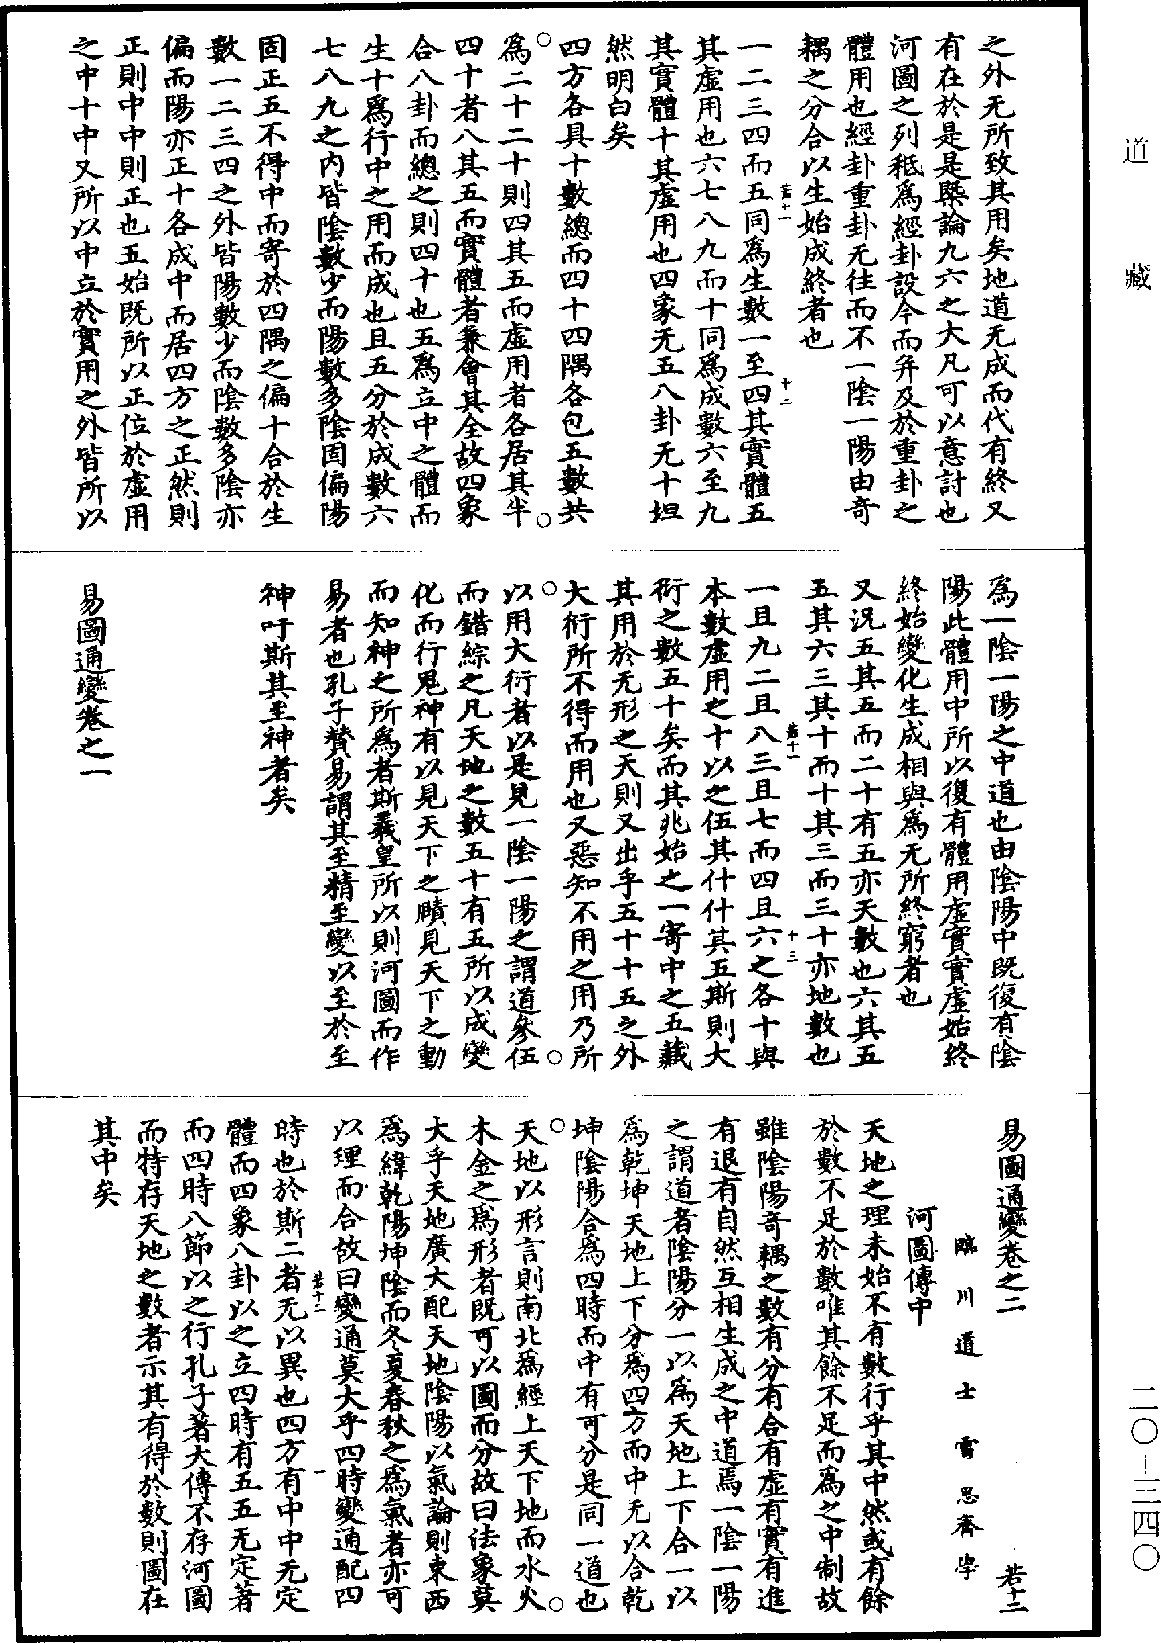 之外无所致其用矣地道无成而代有終又
有在於是是槩論九六之大凡可以意討也
河圖之列秪為經卦設今而并及於重卦之
體用也經卦重卦无往而不一陰一陽由奇
耦之分合以生始成終者也
一二三四而五同為生數一至四其實體五
其虛用也六七八九而十同為成數六至九
其實體十其虛用也四象无五八卦无十坦
然明白矣
四方各具十數總而四十四隅各包五數共
為二十二十則四其五而虛用者各居其半
四十者八其五而實體者兼會其全故四象
合八卦而總之則四十也五為立中之體而
生十為行中之用而成也且五分於成數六
七八九之内皆陰數少而陽數多陰固偏陽
固正五不得中而寄於四隅之偏十合於生
數一二三四之外皆陽數少而陰數多陰亦
偏而陽亦正十各成中而居四方之正然則
正則中中則正也五始既所以正位於虛用
之中十中又所以中立於實用之外皆所以
為一陰一陽之中道也由陰陽中既復有陰
陽此體用中所以復有體用虛實實虛始終
終始變化生成相與為无所終窮者也
又況五其五而二十有五亦天數也六其五
五其六三其十而十其三而三十亦地數也
一且九二且八三且七而四且六之各十與
本數虛用之十以之伍其什什其五斯則大
衍之數五十矣而其兆始之一寄中之五藏
其用於无形之天則又出乎五十十五之外
大衍所不得而用也又惡知不用之用乃所
以用大衍者以是見一陰一陽之謂道參伍
而錯綜之凡天地之數五十有五所以成變
化而行鬼神有以見天下之賾見天下之動
而知神之所為者斯羲皇所以則河圖而作
易者也孔子贊易謂其至精至變以至於至
神吁斯其至神者矣
易圖通變卷之一
易圖通變卷之二
若十二
臨川道士雷思齊學
河圖傳中
天地之理未始不有數行乎其中然或有餘
於數不足於數唯其餘不足而為之中制故
雖陰陽奇耦之數有分有合有虛有實有進
有退有自然互相生成之中道焉一陰一陽
之謂道者陰陽分一以為天地上下合一以
為乾坤天地上下分為四方而中无以合乾
坤陰陽合為四時而中有可分是同一道也
天地以形言則南北為經上天下地而水火
木金之為形者既可以圖而分故曰法象莫
大乎天地廣大配天地陰陽以氣論則東西
為緯乾陽坤陰而冬夏春秋之為氣者亦可
以理而合故曰變通莫大乎四時變通配四
時也於斯二者无以異也四方有中中无定
體而四象八卦以之立四時有五五无定著
而四時八節以之行孔子著大傳不存河圖
而特存天地之數者示其有得於數則圖在
其中矣
道藏
二〇-三四〇